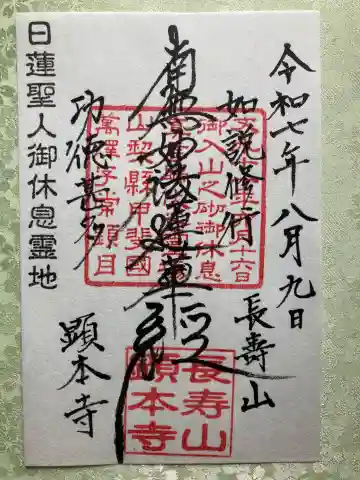 令和七年八月九日
如説修行
長寿山
南無妙法蓮華経
功徳甚多
顕本寺
日蓮聖人御休息霊地
御入山之砌御休息
山梨縣甲斐國
長寿山
顕本寺